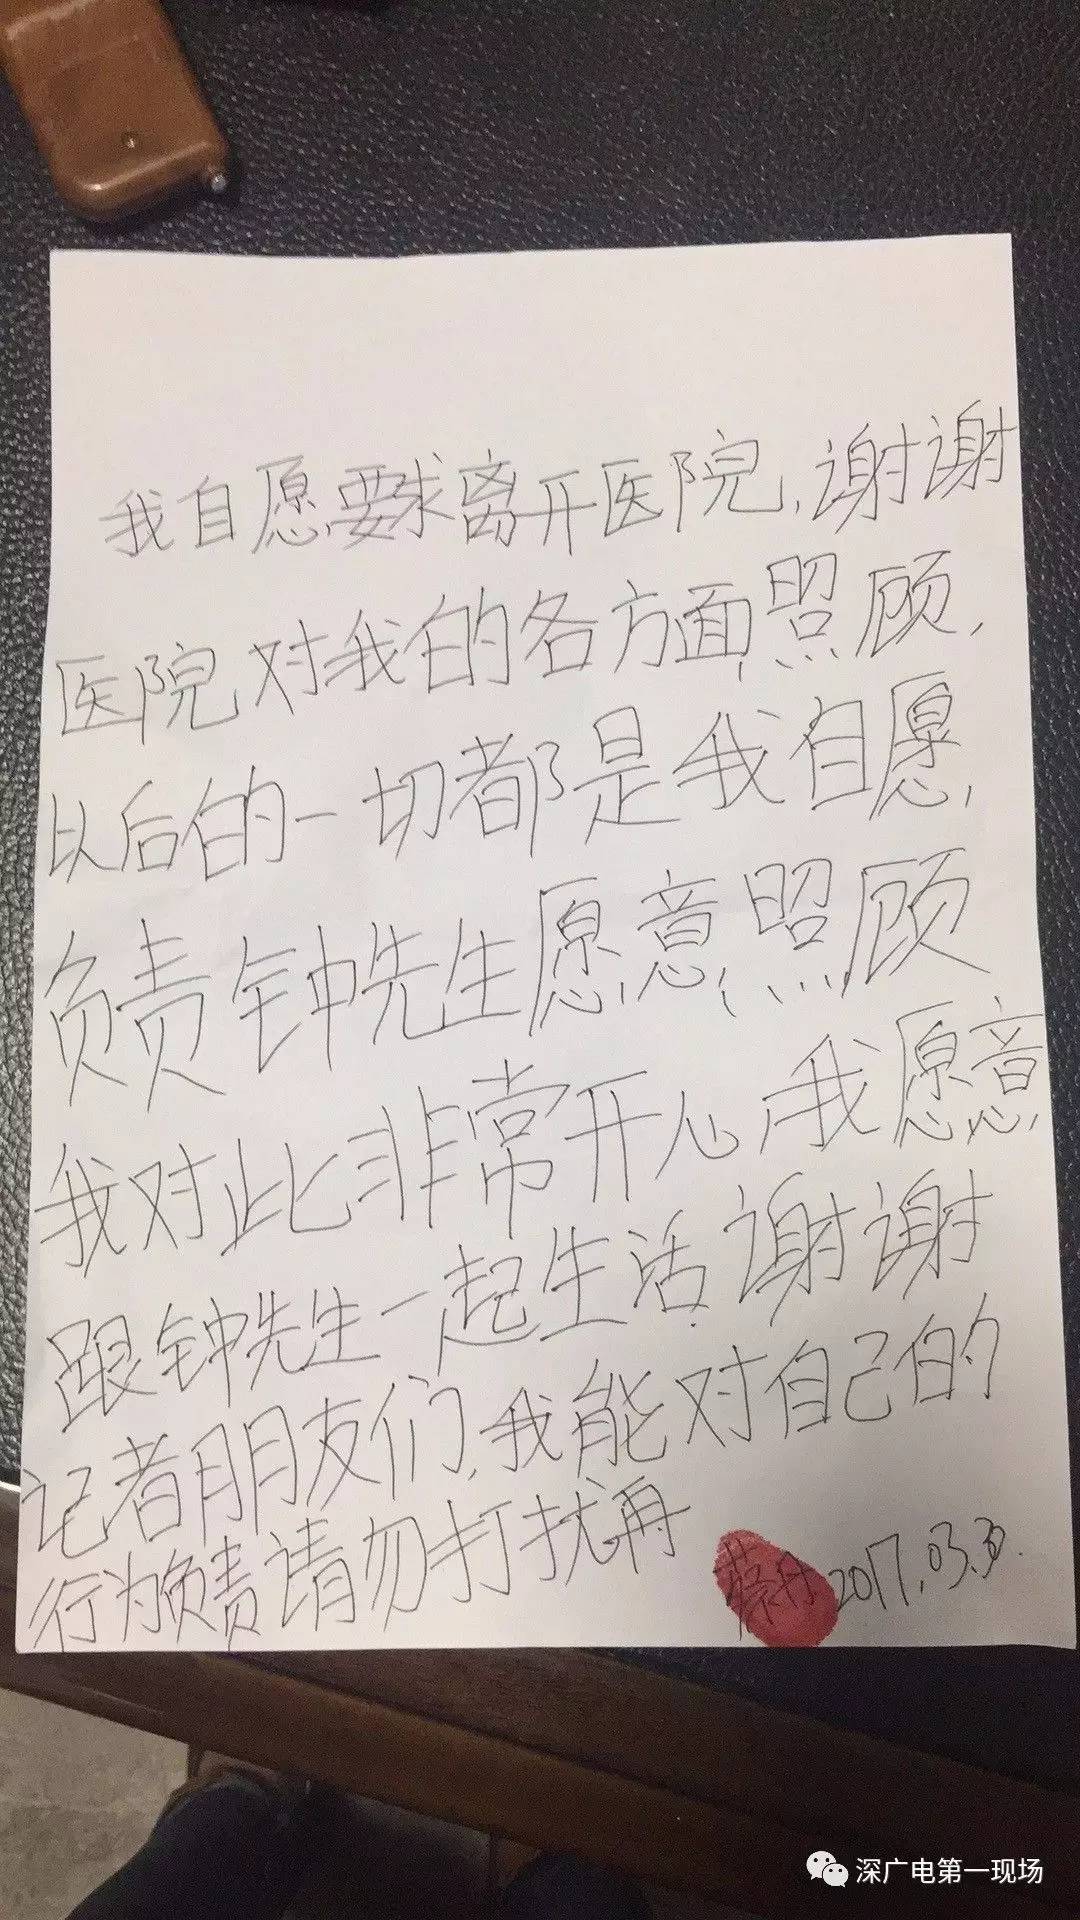 我自愿要求离开医院,谢谢
医院对我的各方面照顾,
以后的一切都是我自愿,
负责钟先生愿意照顾
我对此非常开心,我愿意
跟钟先生一起生活.谢谢
记者朋友们,我能对自己的
行为负责请勿打扰再
2017.03.
深广电第一现场